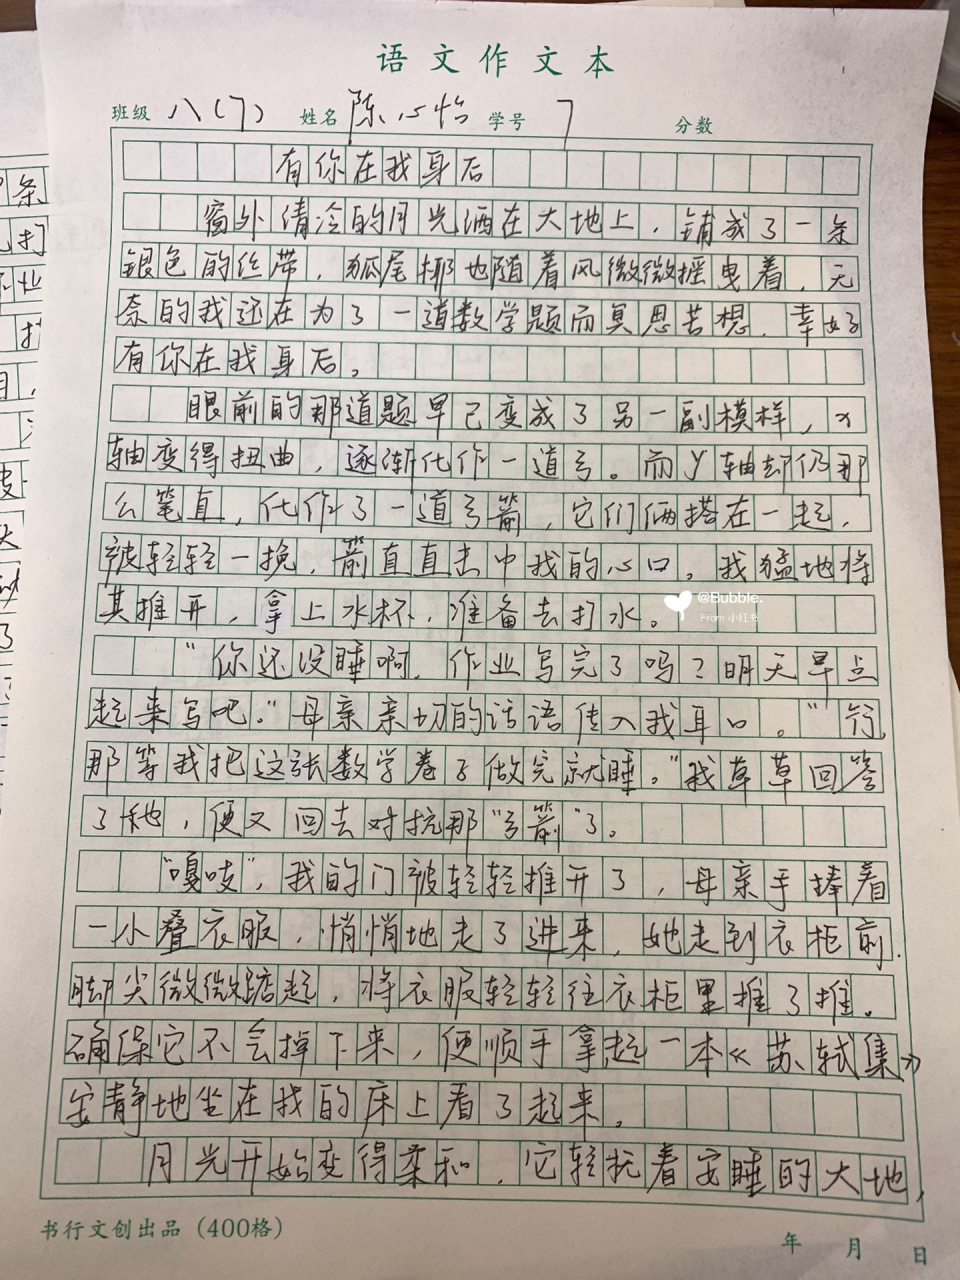 语文作文本
班级 八(7) 姓名 陈心怡 学号 7 分数
有你在我身后
窗外清冷的月光洒在大地上，铺成了一条
银色的丝带，狐尾椰也随着风微微摇曳着，无
奈的我还在为了一道数学题而冥思苦想，幸好
有你在我身后。
眼前的那道题早已变成了另一副模样，x
轴变得扭曲，逐渐化作一道弓。而y轴却仍那
么笔直，化作了一道弓箭，它们俩搭在一起，
被轻轻一挽，箭直直击中我的心口。我猛地将
其推开，拿上水杯，准备去打水。
@Bubble.
From 小红书
“你还没睡啊，作业写完了吗？明天早点
起来写吧。”母亲亲切的话语传入我耳口。“行，
那等我把这张数学卷子做完就睡。”我草草回答
了她，便又回去对抗那“弓箭”了。
“嘎吱”，我的门被轻轻推开了，母亲手捧着
一小叠衣服，悄悄地走了进来，她走到衣柜前，
脚尖微微踮起，将衣服轻轻往衣柜里推了推。
确保它不会掉下来，便顺手拿起一本《苏轼集》
安静地坐在我的床上看了起来。
月光开始变得柔和，它轻抚着安睡的大地，
书行文创出品（400格）
年 月 日
条
打
业
扌